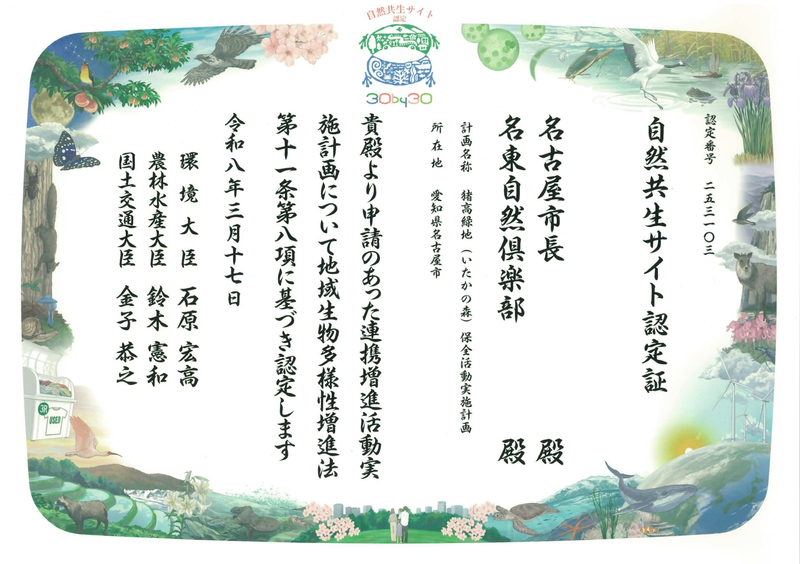 自然共生サイト
認定
30by30
認定番号 二五三一〇三
自然共生サイト認定証
名古屋市長 殿
名東自然倶楽部 殿
計画名称 猪高緑地（いたかの森）保全活動実施計画
所在地 愛知県名古屋市
貴殿より申請のあった連携増進活動実
施計画について地域生物多様性増進法
第十一条第八項に基づき認定します
令和八年三月十七日
環境大臣 石原宏高
農林水産大臣 鈴木憲和
国土交通大臣 金子恭之
3R
USED